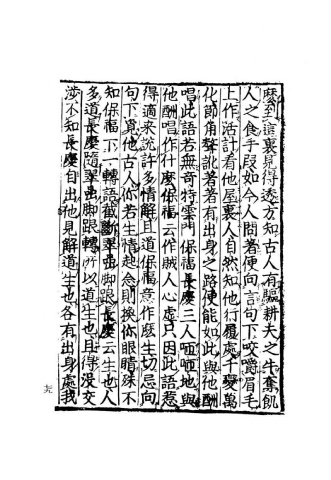 麽到這裏見得透方知古人有驅耕夫之牛奪飢
人之食手段如今人問著便向言句下咬嚼眉毛
上作活計看他屋裏人自然知他行履處千變萬
化節角聱訛著著有出身之路便能如此與他酬
唱此語若無奇特雲門保福長慶三人咂咂地與
他酬唱作什麽保福云作賊人心虛只因此語惹
得適来説許多情解且道保福意作麽生切忌向
句下覓他古人你若生情起念則換你眼睛殊不
知保福下一轉語截斷翠嵓脚跟長慶云生也人
多道長慶隨翠嵓脚跟轉所以道生也且得没交
涉不知長慶自出他見解道生也各有出身處我